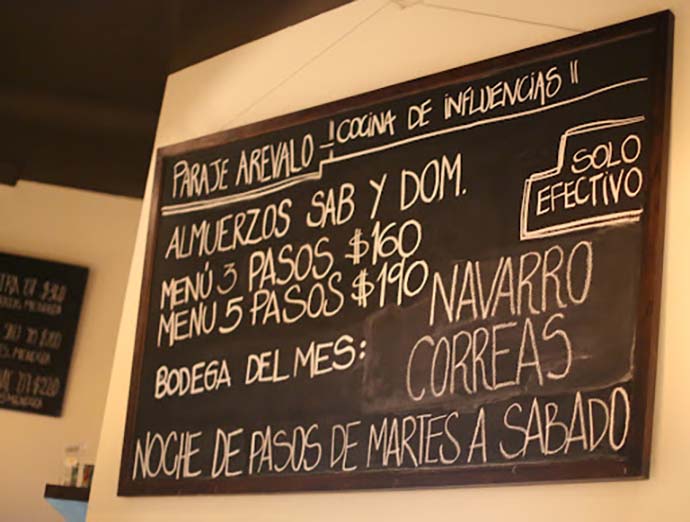 PARAJE AREVALO "COCINA DE INFLUENCIAS"
ALMUERZOS SAB Y DOM.
SOLO
EFECTIVO
MENÚ 3 PASOS $160
MENU 5 PASOS $190
BODEGA DEL MES:
NAVARRO
CORREAS
NOCHE DE PASOS DE MARTES A SABADO